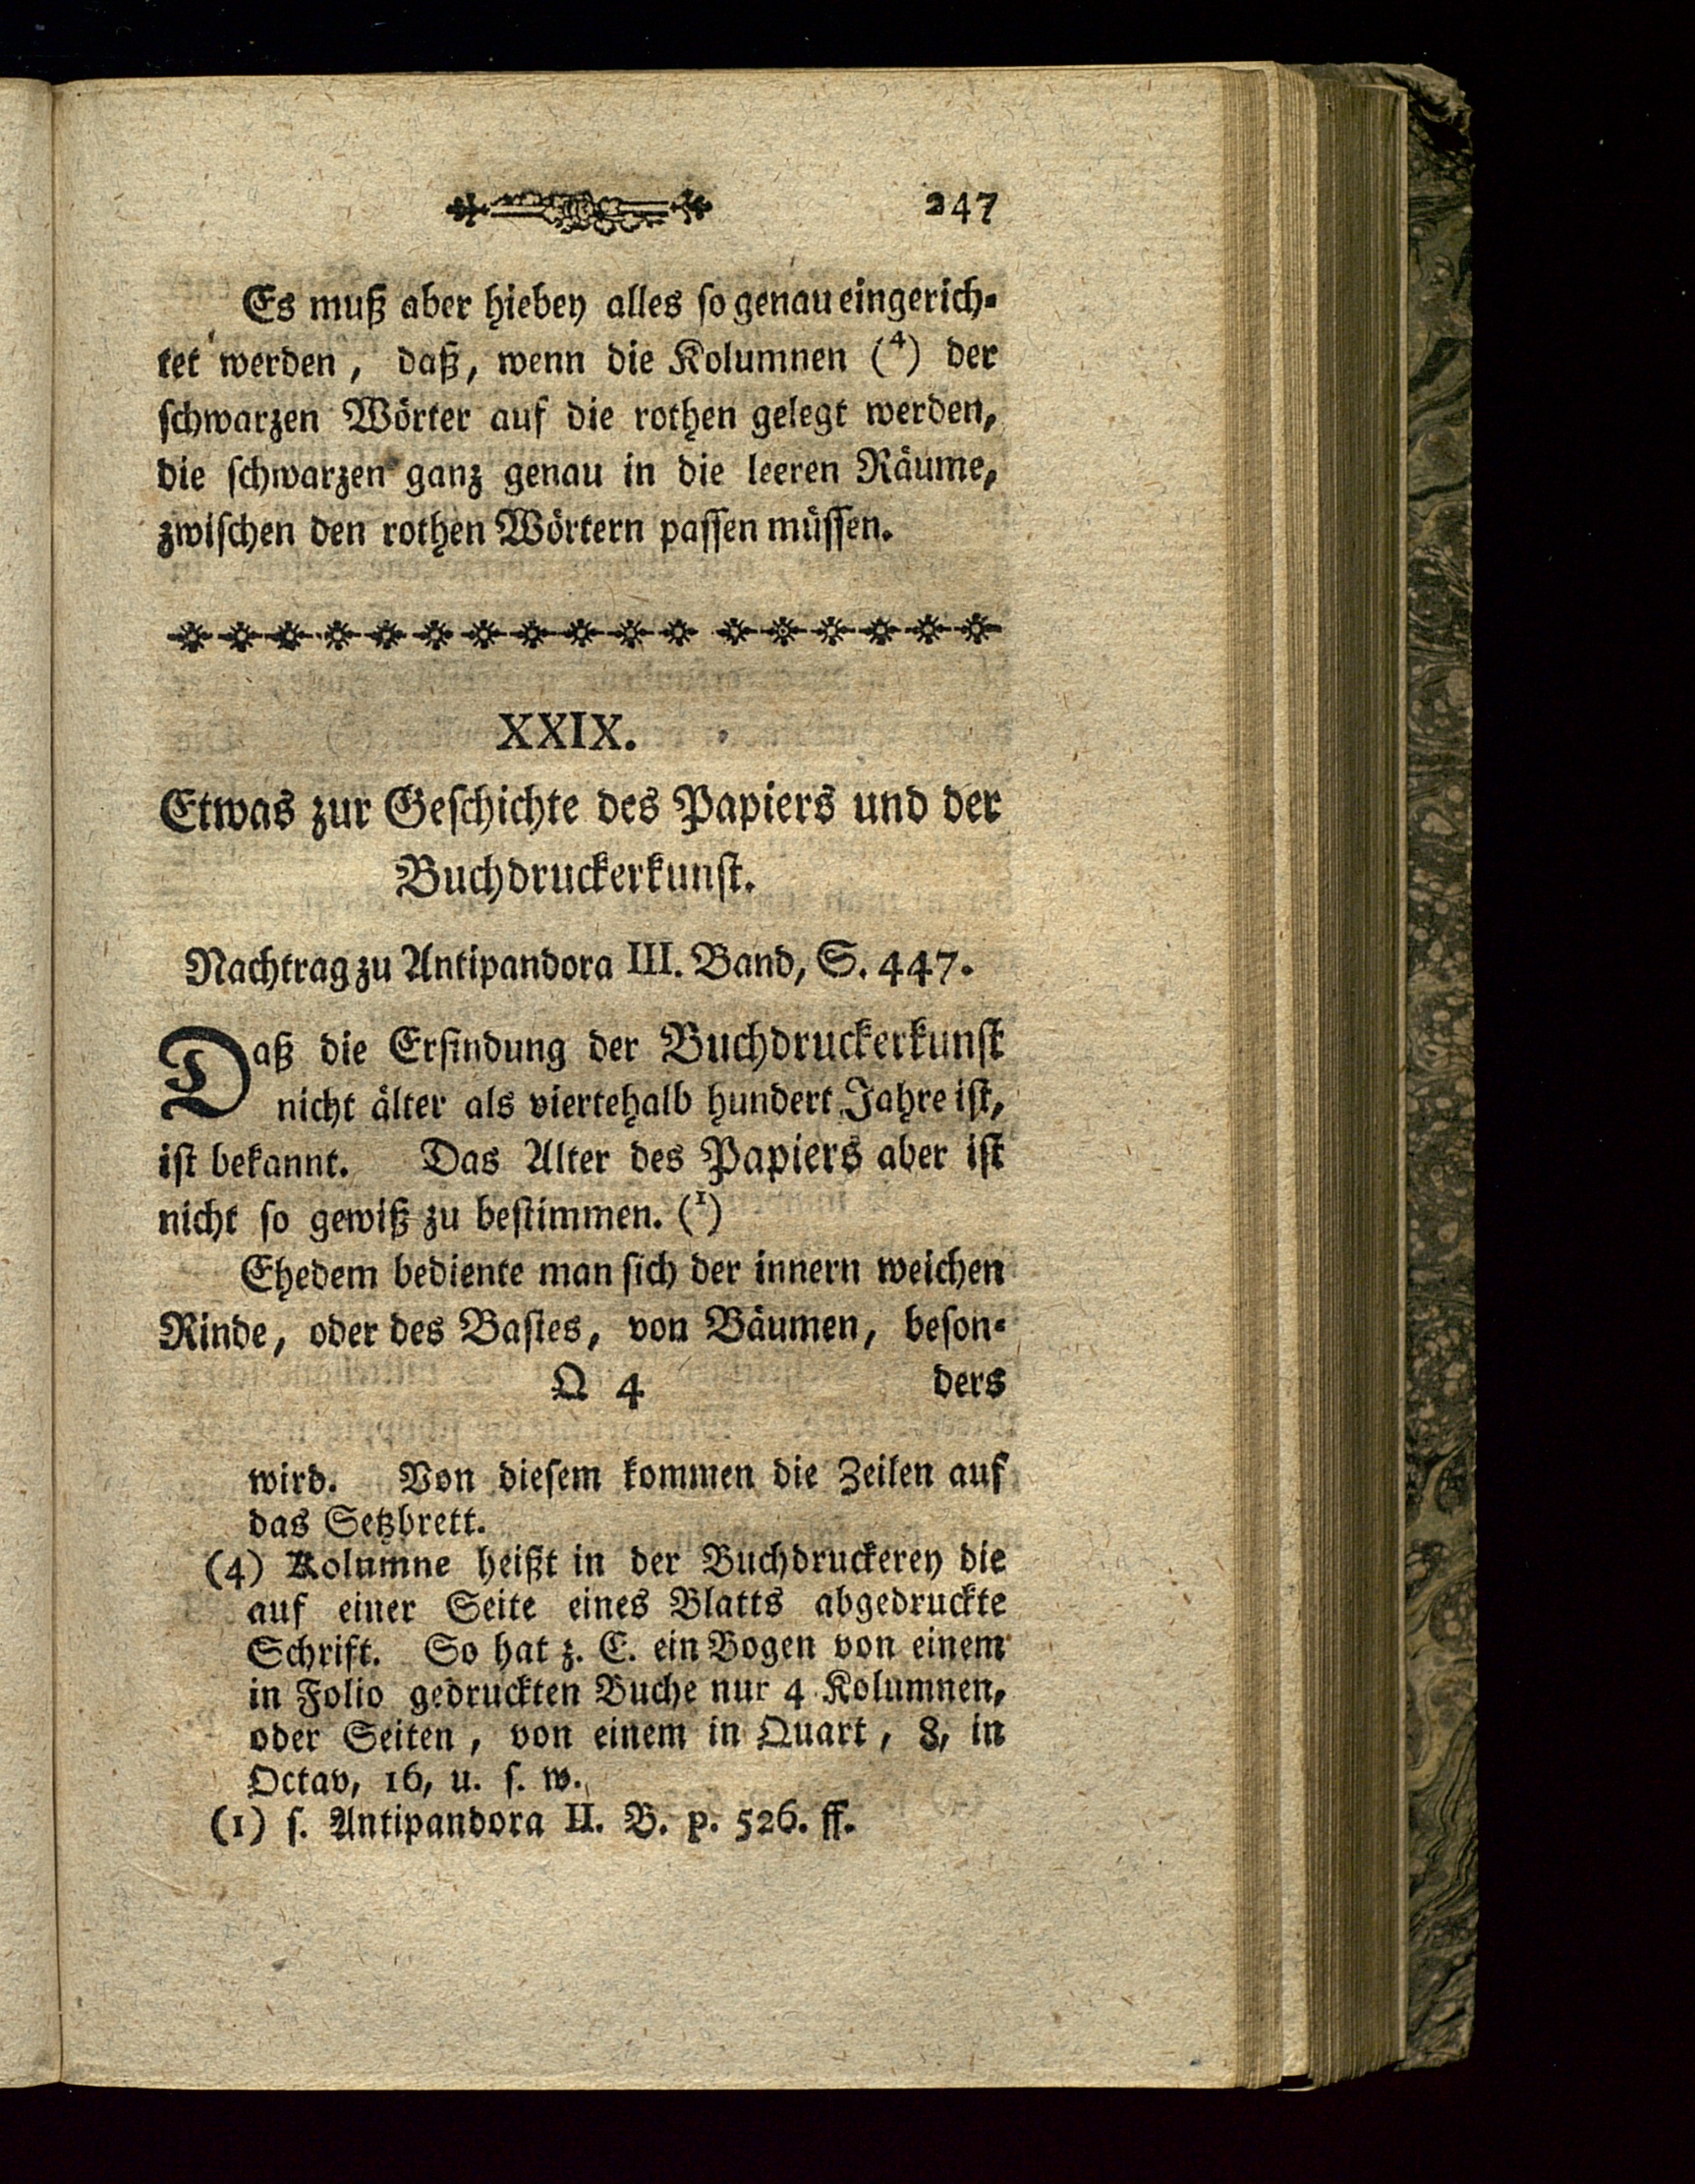 247
Es muß aber hiebey alles so genau eingerich-
tet werden, daß, wenn die Kolumnen (⁴) der
schwarzen Wörter auf die rothen gelegt werden,
die schwarzen ganz genau in die leeren Räume,
zwischen den rothen Wörtern passen müssen.
XXIX.
Etwas zur Geschichte des Papiers und der
Buchdruckerkunst.
Nachtrag zu Antipandora III. Band, S. 447.
Daß die Erfindung der Buchdruckerkunst
nicht älter als viertehalb hundert Jahre ist,
ist bekannt. Das Alter des Papiers aber ist
nicht so gewiß zu bestimmen. (¹)
Ehedem bediente man sich der innern weichen
Rinde, oder des Bastes, von Bäumen, beson-
Q 4 ders
wird. Von diesem kommen die Zeilen auf
das Setzbrett.
(4) Kolumne heißt in der Buchdruckerey die
auf einer Seite eines Blatts abgedruckte
Schrift. So hat z. E. ein Bogen von einem
in Folio gedruckten Buche nur 4 Kolumnen,
oder Seiten, von einem in Quart, 8, in
Octav, 16, u. s. w.
(1) s. Antipandora II. B. p. 526. ff.